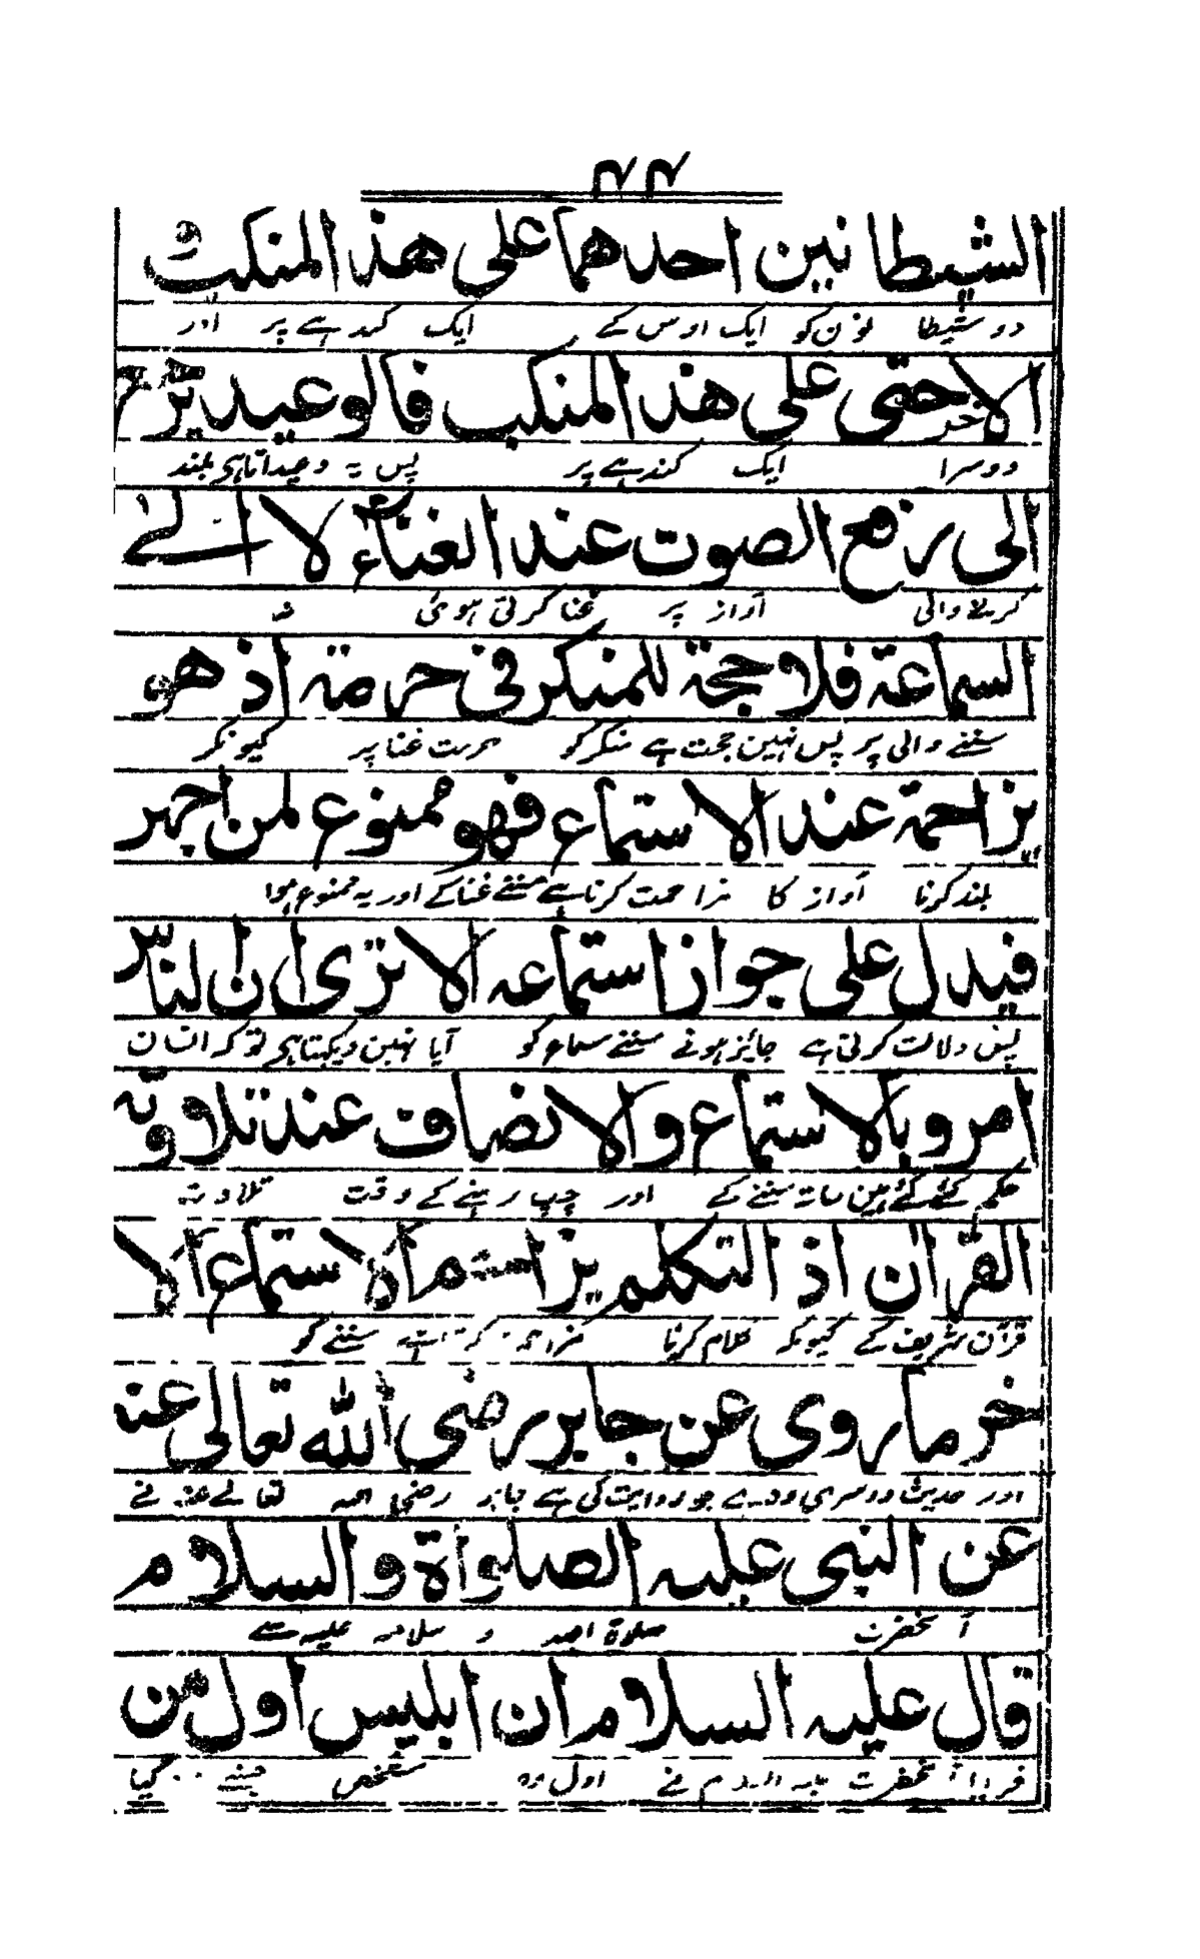 ۴۴
الشیطانین احدهما علی هذا المنکب و
دو شیطا نون کو ایک اوس کے ایک کندہے پر اور
الاخر حتی علی هذا المنکب فالوعید یرجع
دوسرا ایک کندہے پر پس یہ وعید آتا ہی بلند
الی رفع الصوت عند الغناء لا الے
کرنے والی آواز پر غنا کرتی ہوئی نہ
السماعة فلا حجة للمنکر فی حرمة اذ هو
سننے والی پر پس نہین حجت ہے منکر کو حرمت غنا پر کیونکر
یزاحمة عند الاستماع فهو ممنوع لمن اجهر
بلند کرنا آواز کا مزاحمت کرنا ہے سننے غنا کے اور یہ ممنوع ہوا
فیدل علی جواز استماعه الا تری ان الناس
پس دلالت کرتی ہے جائز ہونے سننے سماع کو آیا نہین دیکہتا ہی تو کہ انسان
امروبالاستماع والانصاف عند تلاوته
حکم کئے گئے ہین ساتہ سننے کے اور چپ رہنے کے وقت تلاوت
القرآن اذ التکلم یزاحم الاستماع الا
قرآن شریف کے کیونکہ کلام کرنا سننے کو
خر ما روی عن جابر رضی الله تعالی عنه
اور حدیث دوسری وہ ہے جو روایت کی ہے جابر رضی اللہ تعالے عنہ نے
عن النبی علیه الصلوٰة والسلام
آنحضرت صلوٰة اللہ و سلامہ علیہ سے
قال علیه السلام ان ابلیس اول من
فرمایا آنحضرت علیہ السلام نے اول وہ شخص جسنے کیا